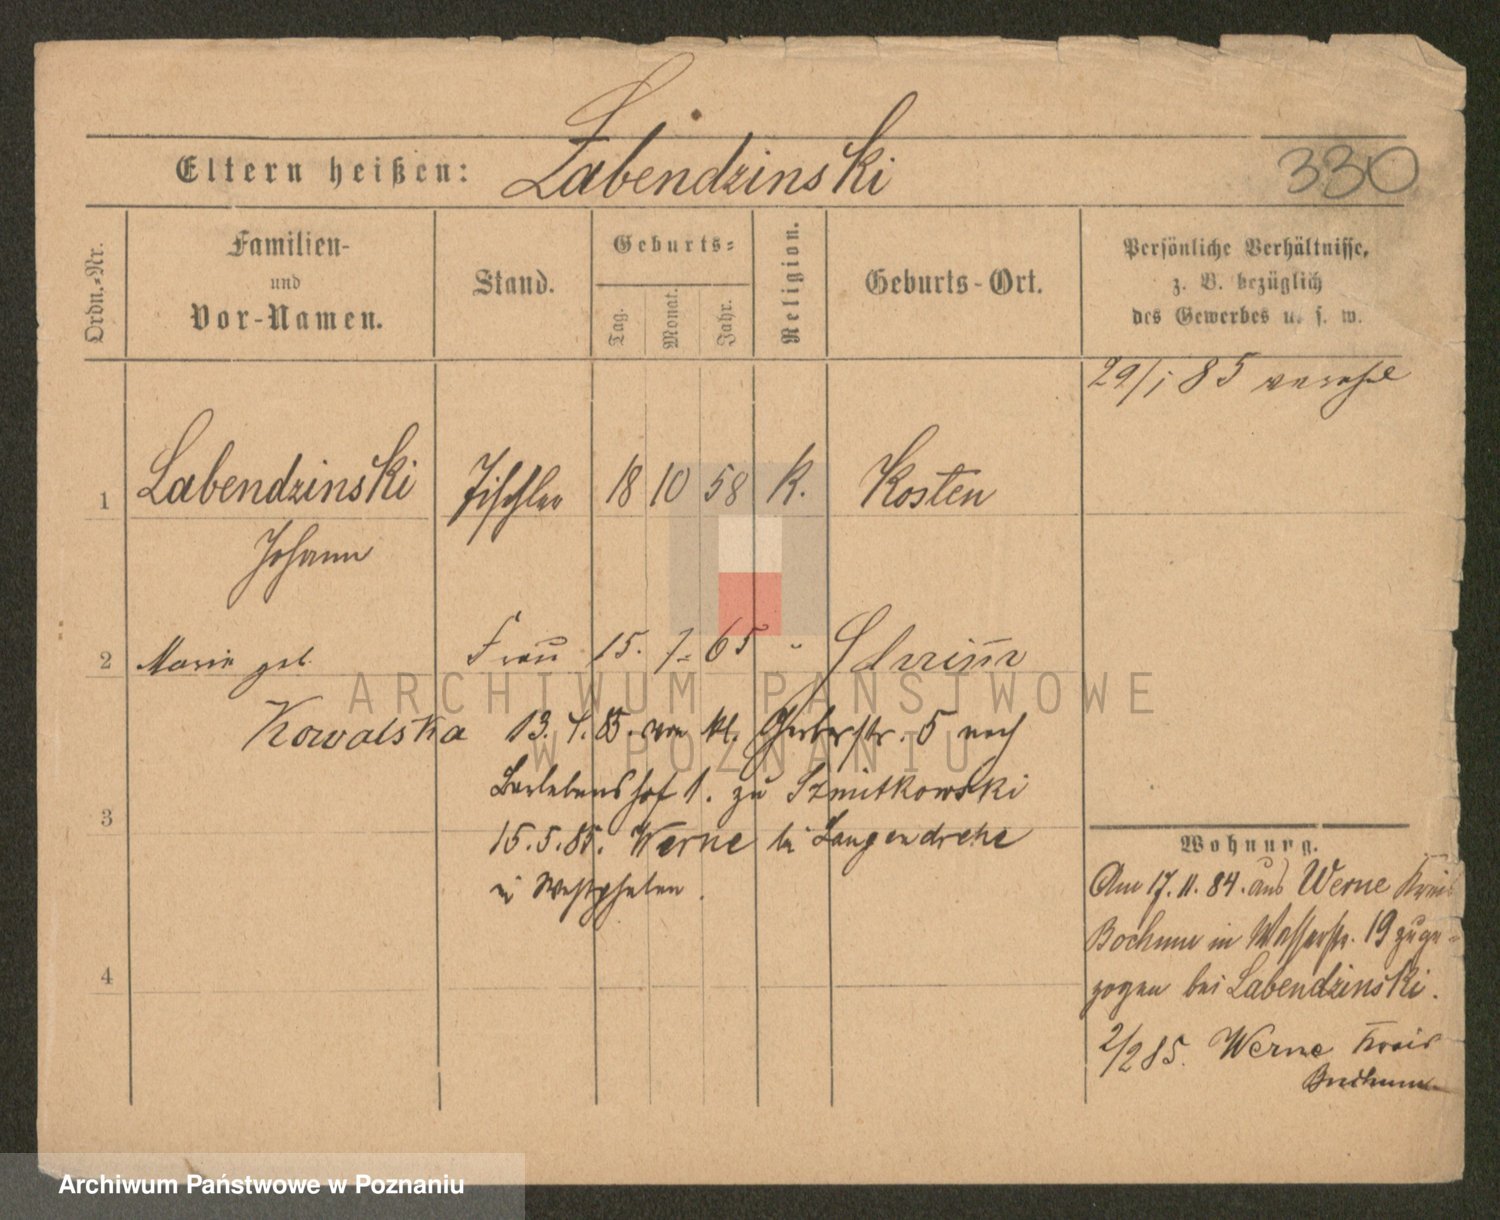 Eltern heißen: Labendzinski
330
Ordn.-Nr.
Familien-
und
Vor-Namen.
Stand.
Geburts-
Tag.
Monat.
Jahr.
Religion.
Geburts-Ort.
Persönliche Verhältnisse,
z. B. bezüglich
des Gewerbes u. s. w.
29/1 85
1 Labendzinski Tischler 18 10 58 K. Kosten
Johann
2 Marie geb. Frau 15. 7. 65 " Schrimm
Kowalska 13. 4. 85. von kl. Gerberstr. 5 nach
1. zu Szmitkowski
3
15. 5. 85. Werne bei Langendreke
in Westphalen.
4
Wohnung.
Am 17. 11. 84. aus Werne Kreis
Bochum in Wasserstr. 19 zuge-
zogen bei Labendzinski.
2/2 85. Werne Kreis
Bochum
ARCHIWUM PAŃSTWOWE
W POZNANIU
Archiwum Państwowe w Poznaniu